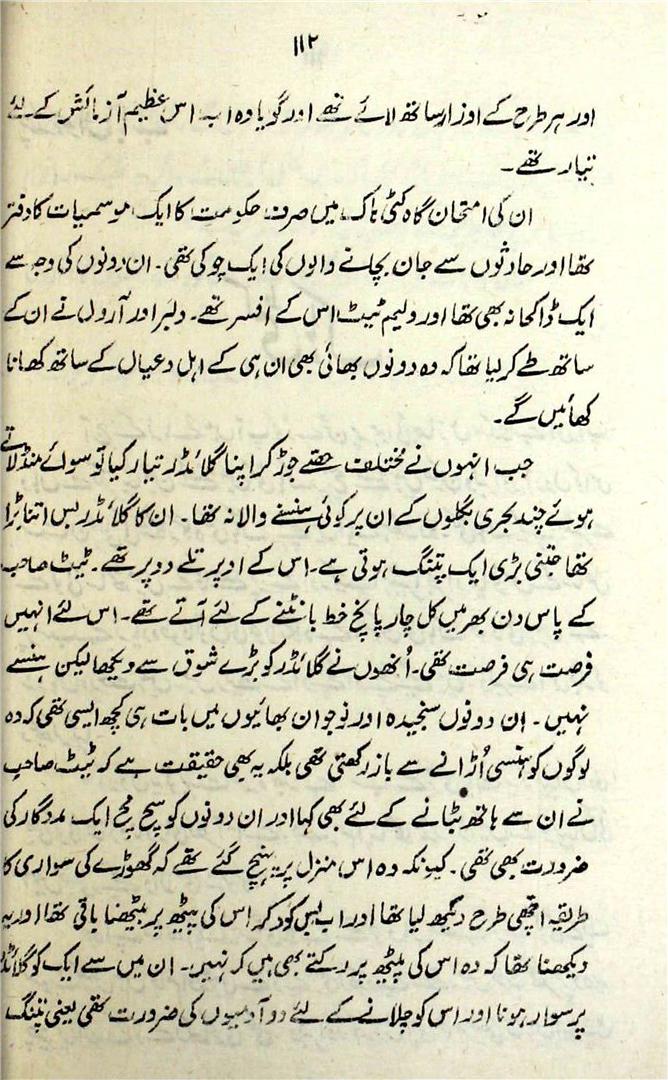 ۱۱۲
اور ہر طرح کے اوزار ساتھ لائے تھے اور گویا وہ اب اس عظیم آزمائش کے لئے
تیار تھے۔
ان کی امتحان گاہ کٹی ہاک میں صرف حکومت کا ایک موسمیات کا دفتر
تھا اور حادثوں سے جان بچانے والوں کی ایک چوکی تھی۔ ان دونوں کی وجہ سے
ایک ڈاکخانہ بھی تھا اور ولیم ٹیٹ اس کے افسر تھے۔ ولبر اور آرول نے ان کے
ساتھ طے کر لیا تھا کہ وہ دونوں بھائی بھی ان ہی کے اہل و عیال کے ساتھ کھانا
کھائیں گے۔
جب انہوں نے مختلف حصّے جوڑ کر اپنا گلائڈر تیار کیا تو سوائے منڈلاتے
ہوئے چند بحری بگلوں کے ان پر کوئی ہنسنے والا نہ تھا۔ ان کا گلائڈر بس اتنا بڑا
تھا جتنی بڑی ایک پتنگ ہوتی ہے۔ اس کے اوپر تلے دو پر تھے۔ ٹیٹ صاحب
کے پاس دن بھر میں کل چار پانچ خط بانٹنے کے لئے آتے تھے۔ اس لئے انہیں
فرصت ہی فرصت تھی۔ اُنھوں نے گلائڈر کو بڑے شوق سے دیکھا لیکن ہنسے
نہیں۔ ان دونوں سنجیدہ اور نوجوان بھائیوں میں بات ہی کچھ ایسی تھی کہ وہ
لوگوں کو ہنسی اُڑانے سے باز رکھتی تھی بلکہ یہ بھی حقیقت ہے کہ ٹیٹ صاحب
نے ان سے ہاتھ بٹانے کے لئے بھی کہا اور ان دونوں کو سچ مچ ایک مددگار کی
ضرورت بھی تھی۔ کیونکہ وہ اس منزل پر پہنچ گئے تھے کہ گھوڑے کی سواری کا
طریقہ اچھی طرح دیکھ لیا تھا اور اب بس کود کر اس کی پیٹھ پر بیٹھنا باقی تھا اور یہ
دیکھنا تھا کہ وہ اس کی پیٹھ پر رکتے بھی ہیں کہ نہیں۔ ان میں سے ایک کو گلائڈر
پر سوار ہونا اور اس کو چلانے کے لئے دو آدمیوں کی ضرورت تھی یعنی پتنگ